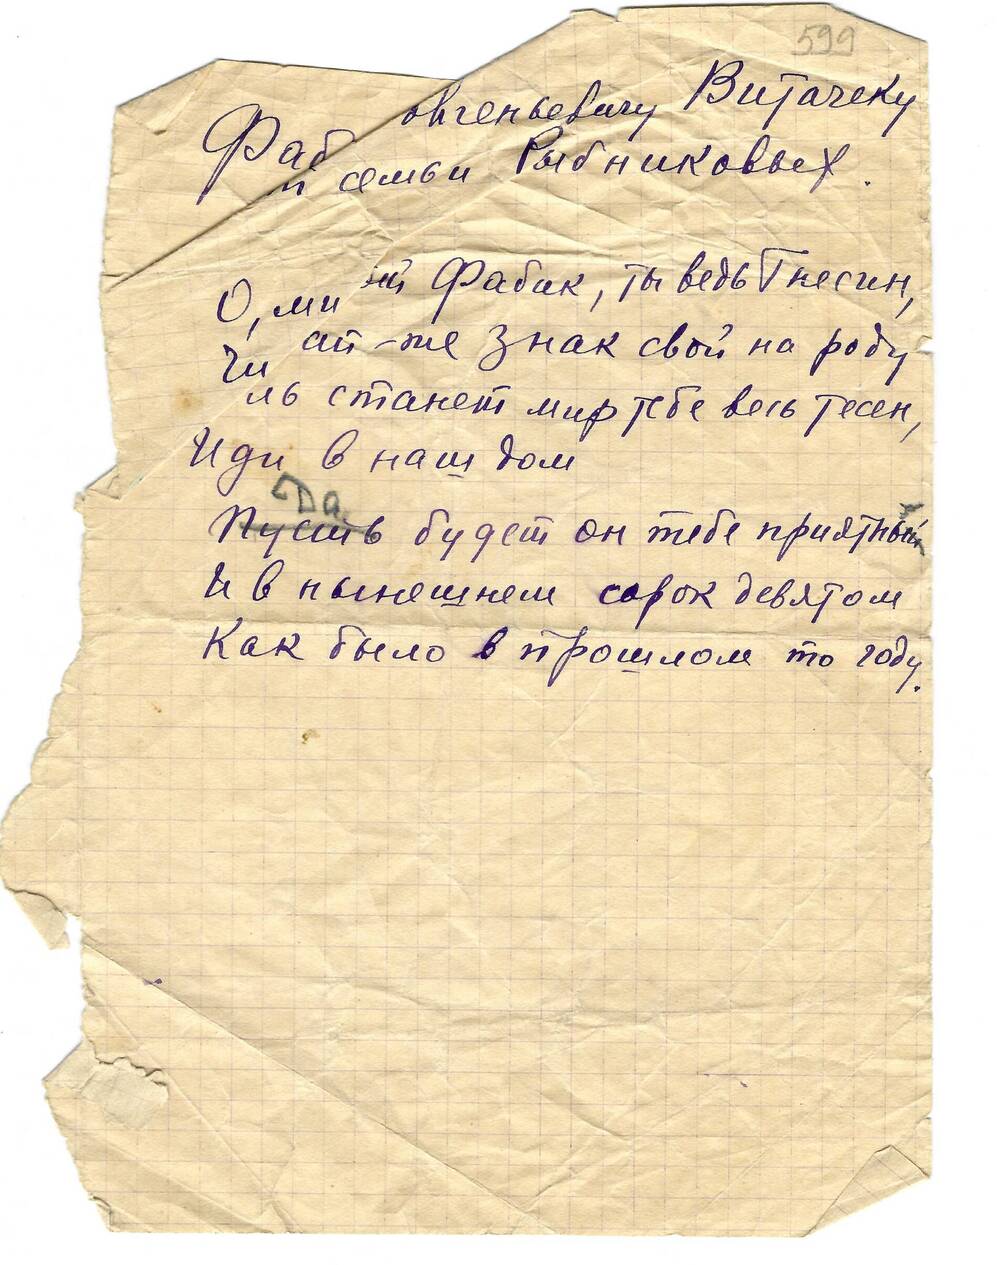 599
Фаб овгеньевичу Витачеку
и семьи Рыбниковых.
О, ми ый Фабик, ты ведь Гнесин,
Чи ай-же знак свой на роду
ль станет мир тебе весь тесен,
Иди в наш дом
Да
Пусть будет он тебе приятный
И в нынешнем сорок девятом
Как было в прошлом то году.